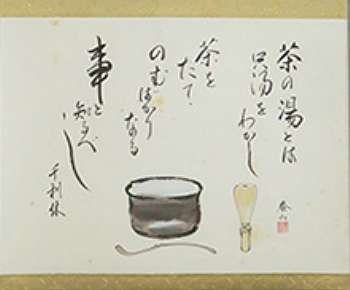 茶の湯とは
只湯をわかし
茶を
たて
のむばかり
なる
事と
知るべし
千利休